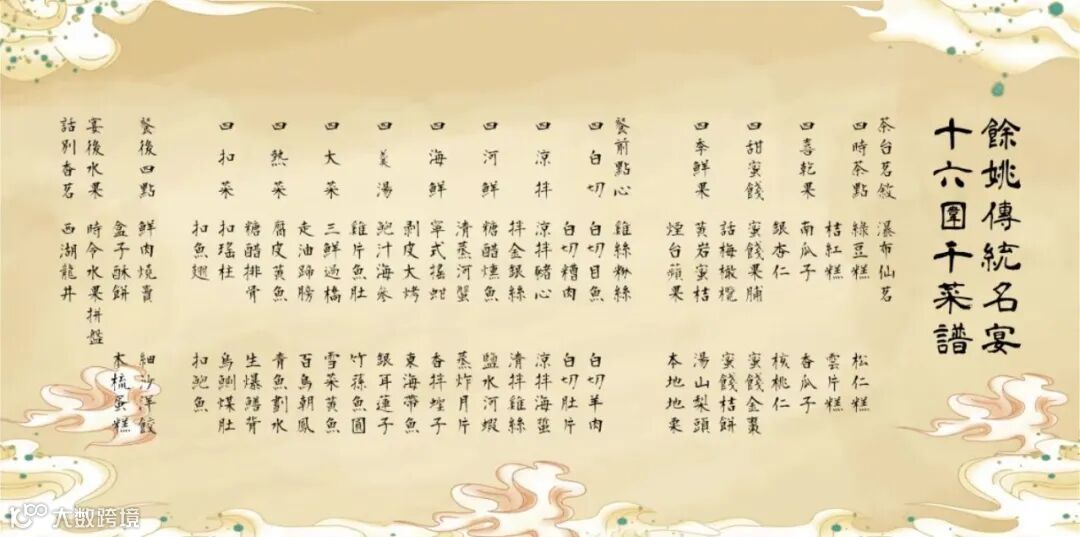 餘姚傳統名宴
十六圍千菜譜
茶台茗敘 瀑布仙茗
四時茶點 綠豆糕 松仁糕
桔紅糕 雲片糕
四喜乾果 南瓜子 香瓜子
銀杏仁 核桃仁
四甜蜜餞 蜜餞果脯 蜜餞金棗
話梅橄欖 蜜餞桔餅
四季鮮果 黃岩蜜桔 湯山梨頭
煙台蘋果 本地地栗
餐前點心 雞絲粉絲
四白切 白切目魚 白切羊肉
白切糟肉 白切肚片
四涼拌 涼拌豬心 涼拌海蜇
拌金銀絲 清拌雞絲
四河鮮 糖醋燻魚 鹽水河蝦
清蒸河蟹 蒸炸月片
四海鮮 寧式搖蚶 香拌蟶子
剥皮大烤 東海帶魚
四美湯 鮑汁海參 銀耳蓮子
雞片魚肚 竹蓀魚圓
四大菜 三鮮過橋 雪菜黃魚
走油蹄膀 百鳥朝鳳
四熱菜 腐皮黃魚 青魚劃水
糖醋排骨 生爆鱔背
四扣菜 扣瑤柱 烏鰂煤肚
扣魚翅 扣鮑魚
餐後四點 鮮肉燒賣 細沙洋餃
盒子酥餅 木梳蛋糕
宴後水果 時令水果拼盤
話別香茗 西湖龍井
大数跨境